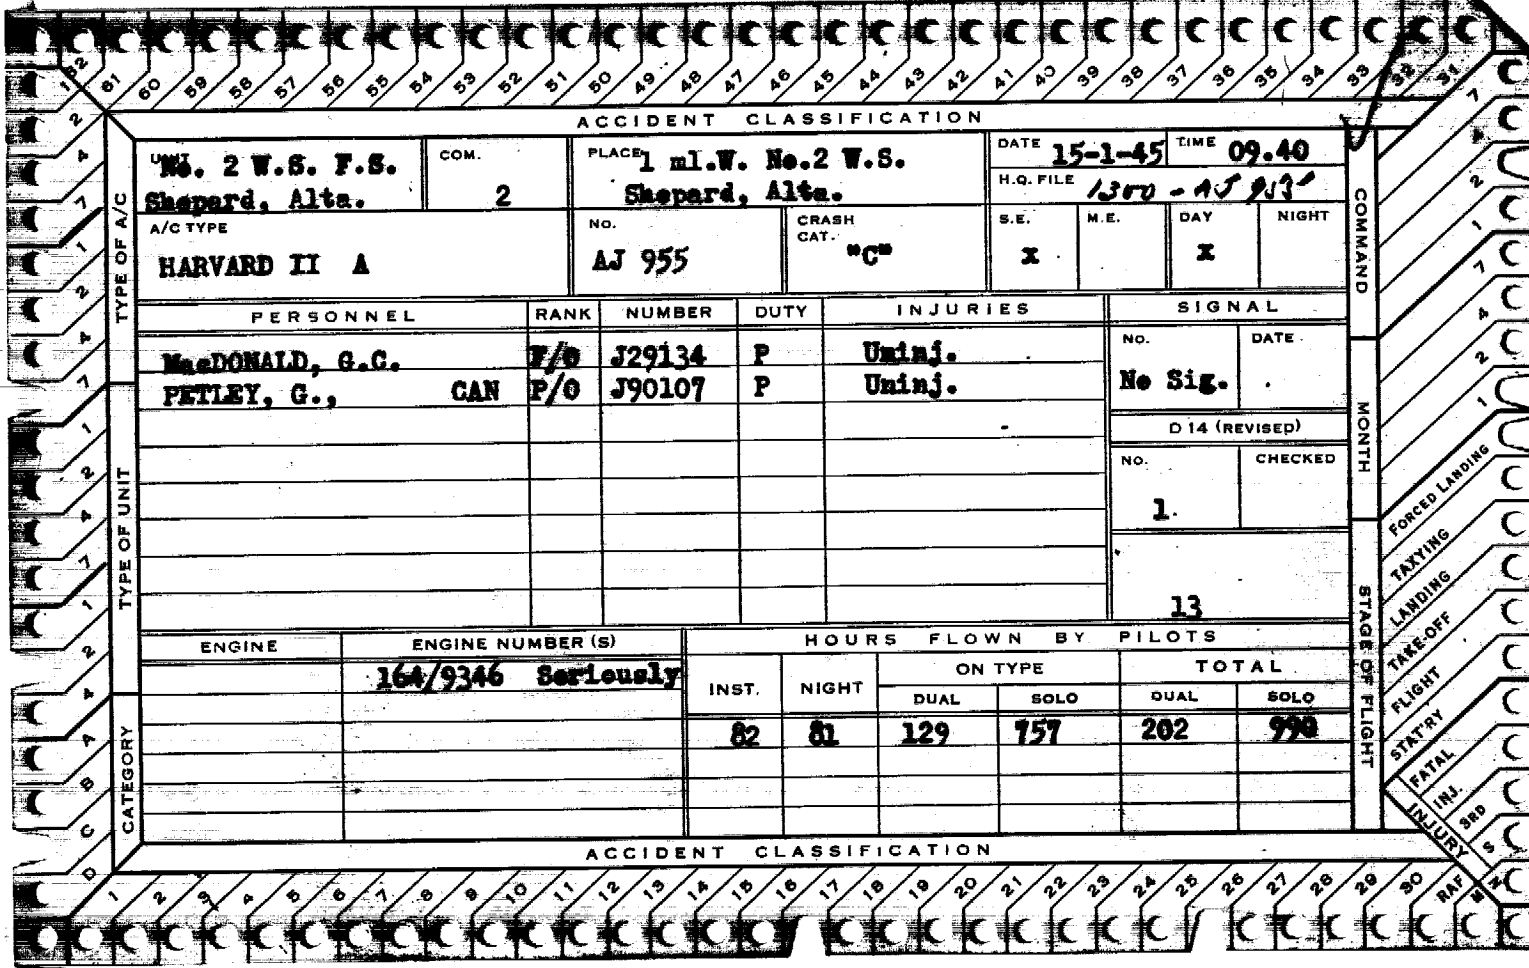 62 61 60 59 58 57 56 55 54 53 52 51 50 49 48 47 46 45 44 43 42 41 40 39 38 37 36 35 34 33 32 31
ACCIDENT CLASSIFICATION
UNIT No. 2 W.S. F.S.
Shepard, Alta.
COM.
2
PLACE 1 ml.W. No.2 W.S.
Shepard, Alta.
DATE 15-1-45 TIME 09.40
H.Q. FILE 1300-AJ 955
A/C TYPE
HARVARD II A
NO.
AJ 955
CRASH
CAT.
"C"
S.E. M.E. DAY NIGHT
x x
PERSONNEL RANK NUMBER DUTY INJURIES SIGNAL
MacDONALD, G.C. F/O J29134 P Uninj.
PETLEY, G., CAN P/O J90107 P Uninj.
NO. DATE
No Sig.
D 14 (REVISED)
NO. CHECKED
1.
13
ENGINE ENGINE NUMBER (S) HOURS FLOWN BY PILOTS
164/9346 Seriously
INST. NIGHT ON TYPE TOTAL
DUAL SOLO DUAL SOLO
82 81 129 757 202 990
ACCIDENT CLASSIFICATION
1 2 3 4 5 6 7 8 9 10 11 12 13 14 15 16 17 18 19 20 21 22 23 24 25 26 27 28 29 30 RAF
TYPE OF A/C
1 2 4 7 1 2 4 7
TYPE OF UNIT
1 2 4 7 1 2 4
CATEGORY
A B C D
COMMAND
7 4 2 1
MONTH
7 4 2 1
STAGE OF FLIGHT
FORCED LANDING
TAXYING
LANDING
TAKE-OFF
FLIGHT
STAT'RY
FATAL
INJ.
INJURY
3RD
S
N
M